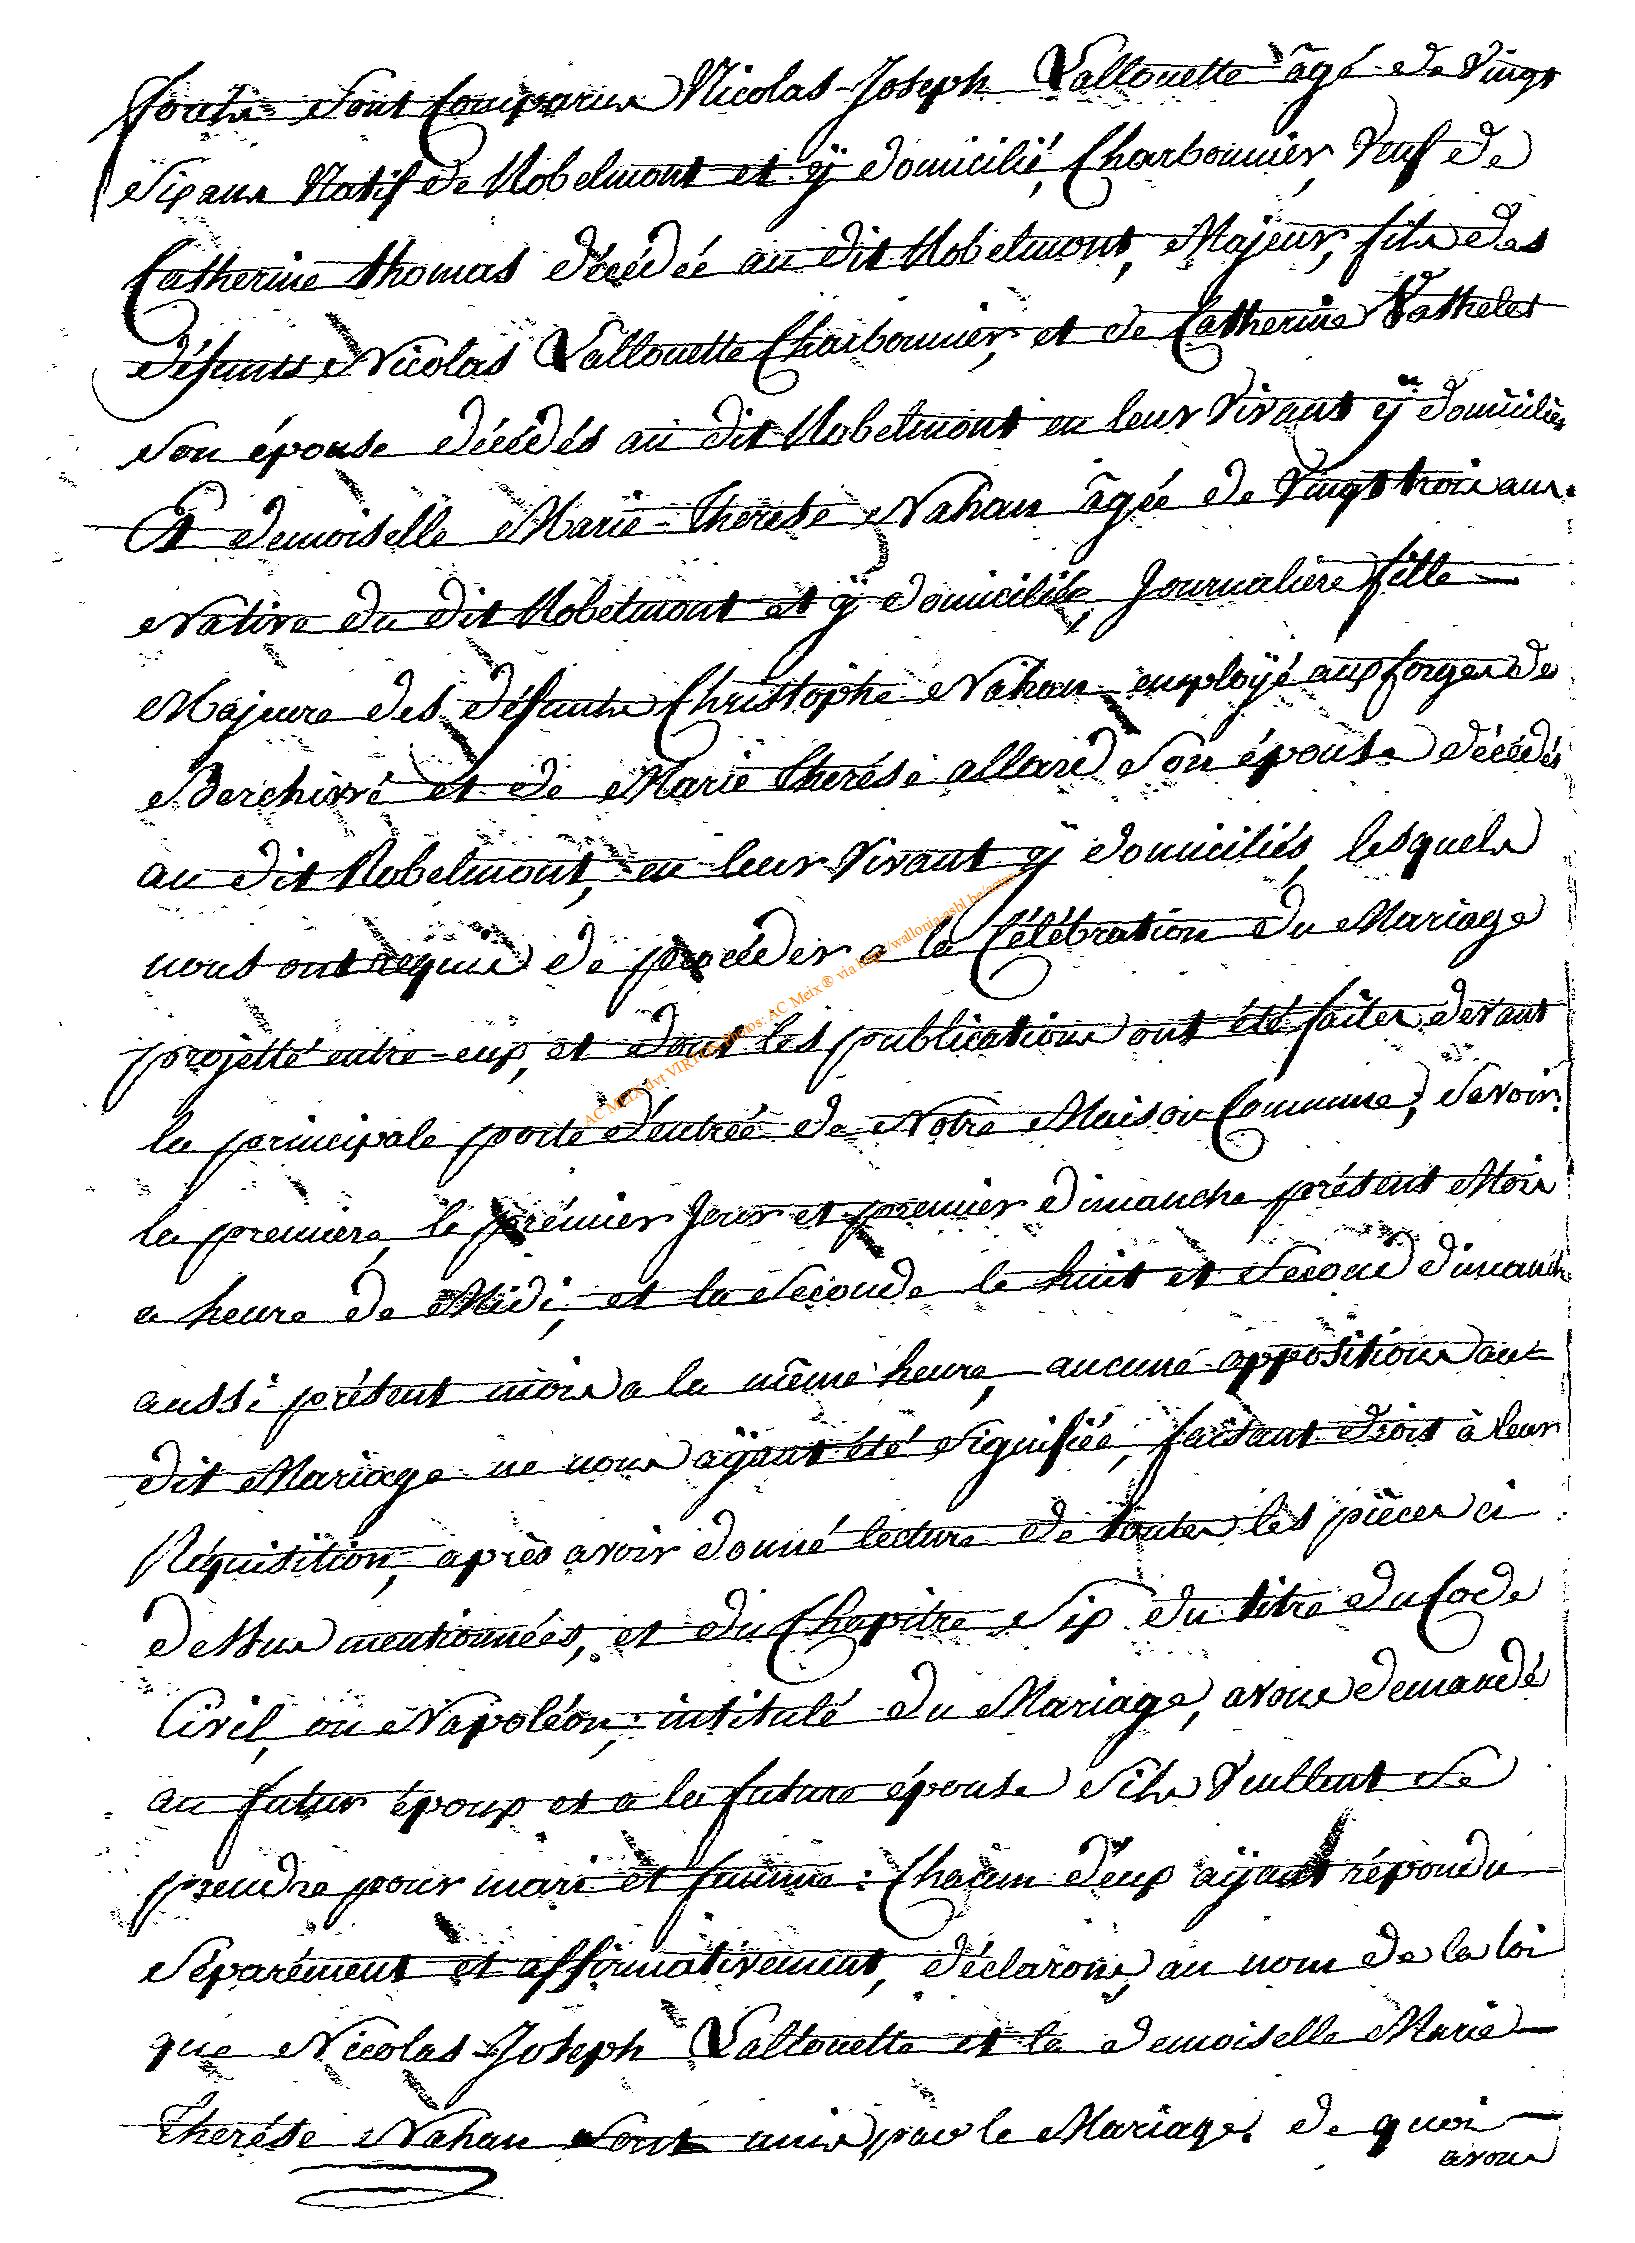 sont comparus Nicolas-Joseph Lallouette âgé de Vingt
Six ans Natif de Robelmont et ÿ domicilié, Charbonnier, Veuf de
Catherine thomas décédée au dit Robelmont, Majeur, fils des
défunts Nicolas Lallouette Charbonnier, et de Catherine Watheles
son épouse décédés au dit Robelmont en leur Vivant ÿ domiciliés
Et demoiselle Marie-Thérèse Nahan âgée de Vingt trois ans.
Native du dit Robelmont et ÿ domiciliée, Journalière fille
Majeure des défunts Christophe Nahan employé aux forges de
Berchivvé et de Marie thérése allard son épouse décédés
au dit Robelmont, en leur Vivant ÿ domiciliés, lesquels
nous ont requis de procéder a la Célébration du Mariage
projetté entre-eux, et dont les publications ont été faites devant
la principale porte d'entrée de Notre Maison Commune, Savoir:
la premiere, le prémier Jour et premier dimanche présent Mois
a heure de Midi, et la Seconde le huit et Second dimanche
aussi présent mois a la même heure, aucune opposition au-
dit Mariage ne nous aÿant été Signifiée, faisant droit à leur
Réquisition, après avoir donné lecture de toutes les pièces ci
dessus mentionnées, et du Chapitre Six du titre du Code
Civil, ou Napoléon, intitulé du Mariage, avons demandé
au futur époux et a la future épouse S'ils Veullent se
prendre pour mari et femme: Chacun d'eux aÿant répondu
Séparément et affirmativement, déclarons, au nom de la loi
que Nicolas-Joseph Lallouette et la demoiselle Marie
Thérése Nahan Sont unis par le Mariage. de quoi
avons